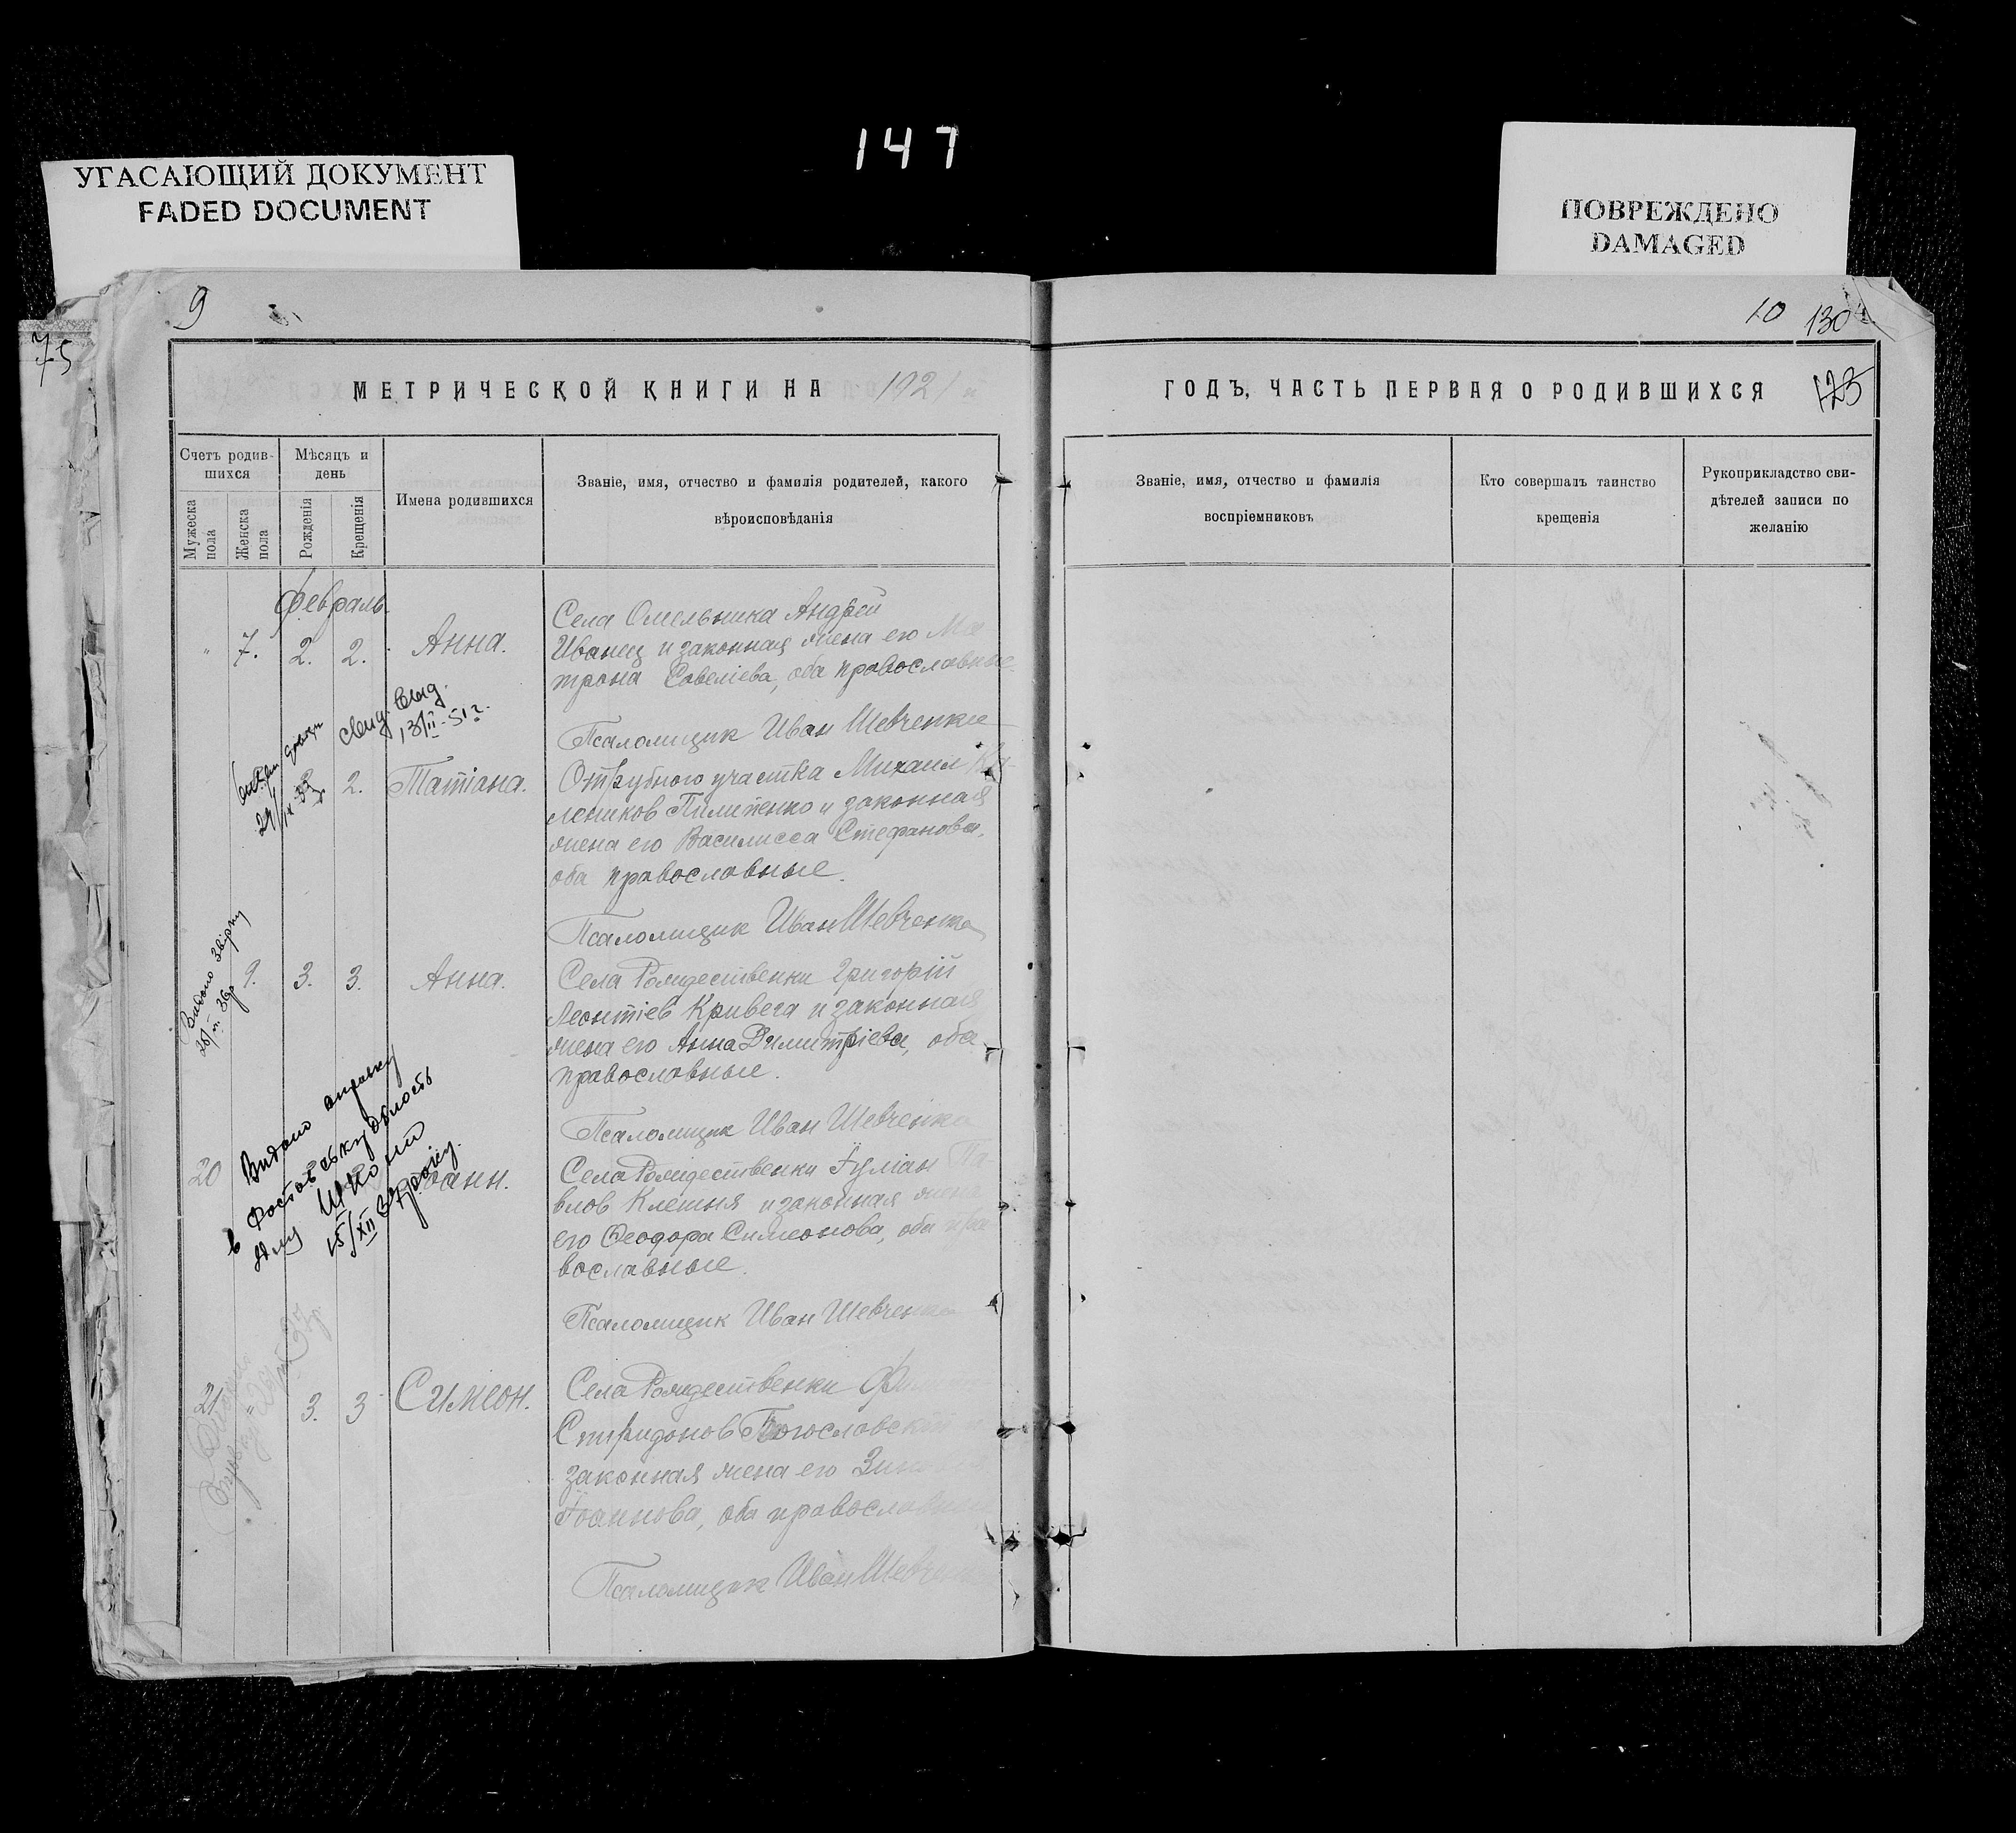 147
УГАСАЮЩИЙ ДОКУМЕНТ
FADED DOCUMENT
ПОВРЕЖДЕНО
DAMAGED
9
10 130
75
МЕТРИЧЕСКОЙ КНИГИ НА 1921
ГОДЪ, ЧАСТЬ ПЕРВАЯ О РОДИВШИХСЯ
123
Счетъ родив-
шихся
Мужеска
пола
Женска
пола
Мѣсяцъ и
день
Рожденія
Крещенія
Имена родившихся
Званіе, имя, отчество и фамилія родителей, какого
вѣроисповѣданія
Званіе, имя, отчество и фамилія
воспріемниковъ
Кто совершалъ таинство
крещенія
Рукоприкладство сви-
дѣтелей записи по
желанію
Февраль.
" 7. 2. 2. Анна.
Села Омельника Андрей
Иванец и законная жена его Ма
трона Савеліева, оба православные
Псаломщик Иван Шевченко
13/II-51г.
2. Татіана.
Отрубного участка Михаил
Пилипенко и законная
жена его Василисса Стефанова,
оба православные.
Псаломщик Иван Шевченко
Видано звірку
9. 3. 3. Анна.
Села Рождественки Григорій
Леонтіев Кривега и законная
жена его Анна Димитріева, оба
православные.
Псаломщик Иван Шевченко
Видано справку
в Ростовську область
для школи
15/XII 37 року.
20
Села Рождественки Іуліан Па-
влов Клешня и законная жена
его Феодора Симеонова, оба пра
вославные.
Псаломщик Иван Шевченко
21. " 3. 3 Симеон.
Села Рождественки
Спиридонов Богословскій
законная жена его
Іоаннова, оба православн
Псаломщик Иван Шевченко